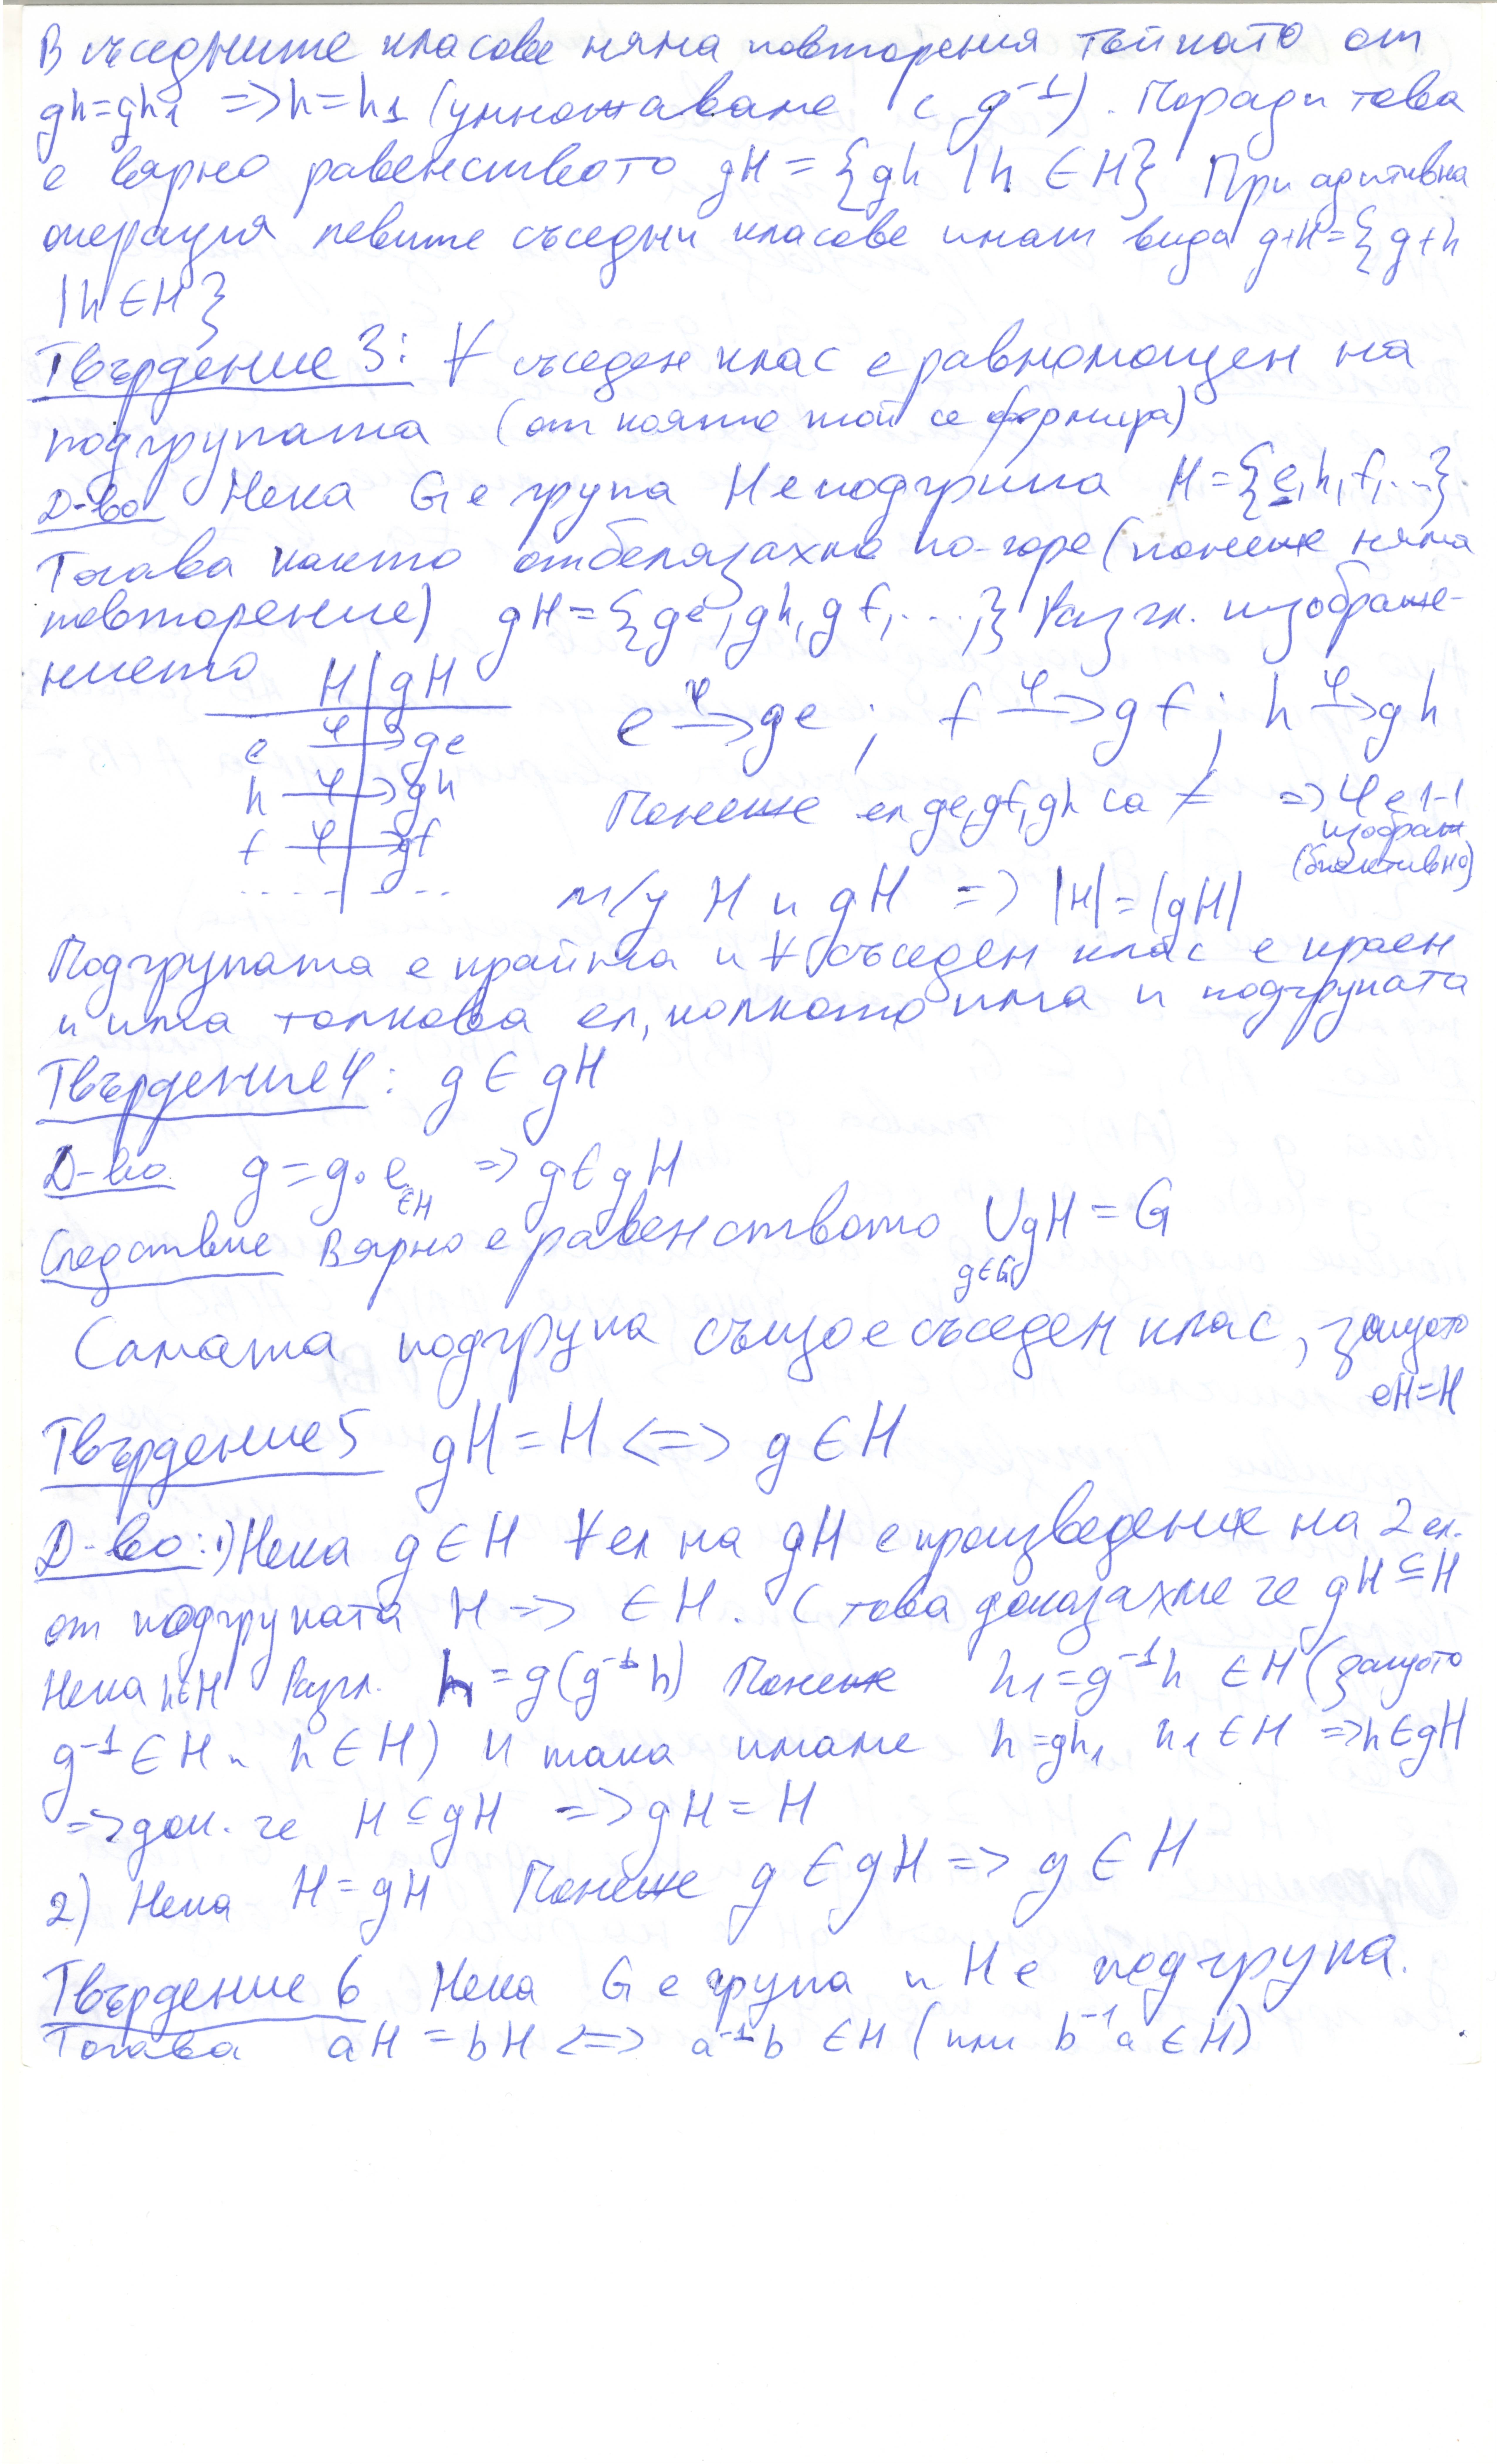 В съседните класове няма повторения тъй като от
gh=gh₁ => h=h₁ (умножаване с g⁻¹). Поради това
е вярно равенството gH = {gh | h ∈ H} При адитивна
операция левите съседни класове имат вида g+H={g+h
|h ∈ H}
Твърдение 3: ∀ съседен клас е равномощен на
подгрупата (от която той се формира)
Д-во Нека G е група H е подгрупа H={e,h,f,...}
Тогава както отбелязахме по-горе (понеже няма
повторение) gH={ge,gh,gf,...,} Разгл. изображе-
нието
H | gH
e φ→ ge
h φ→ gh
f φ→ gf
.... - - ..
e φ→ ge ; f φ→ gf ; h φ→ gh
Понеже ел ge,gf,gh са ≠ => φ е 1-1
изображ
(биективно)
м/у H и gH => |H|=|gH|
Подгрупата е крайна и ∀ съседен клас е краен
и има толкова ел, колкото има и подгрупата
Твърдение 4: g ∈ gH
Д-во g = g.e => g ∈ gH
∈H
Следствие Вярно е равенството ∪gH = G
g∈G
Самата подгрупа също е съседен клас, защото
eH=H
Твърдение 5 gH = H <=> g ∈ H
Д-во: 1) Нека g ∈ H ∀ ел на gH е произведение на 2 ел.
от подгрупата H => ∈ H. С това доказахме че gH ⊆ H
Нека h∈H Разгл. h = g(g⁻¹h) Понеже h₁=g⁻¹h ∈ H (защото
g⁻¹ ∈ H и h ∈ H) И така имаме h=gh₁, h₁ ∈ H => h∈gH
=> док. че H ⊆ gH => gH = H
2) Нека H = gH Понеже g ∈ gH => g ∈ H
Твърдение 6 Нека G е група и H е подгрупа.
Тогава aH = bH <=> a⁻¹b ∈ H (или b⁻¹a ∈ H)